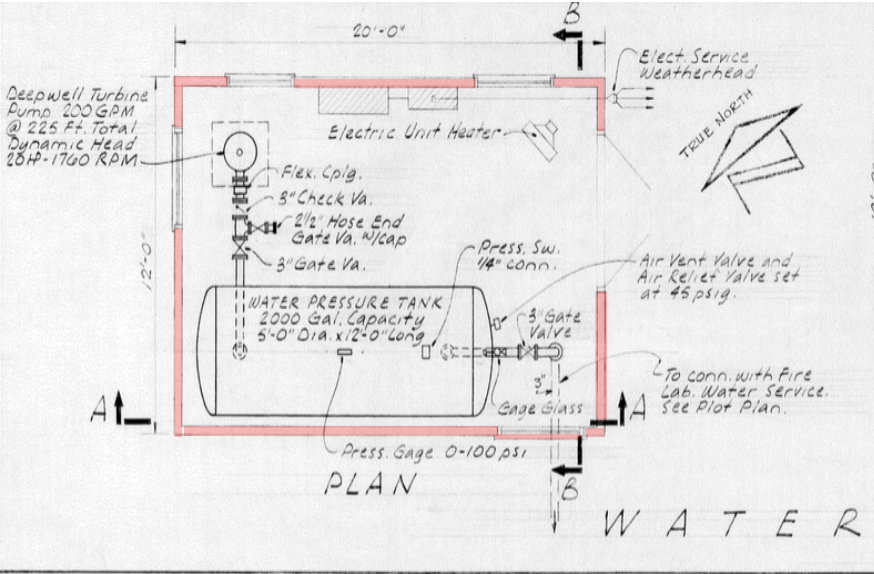 B
20'-0"
Elect. Service
Weatherhead
Deepwell Turbine
Pump 200 GPM
@ 225 Ft. Total
Dynamic Head
20HP-1760 RPM
TRUE NORTH
Electric Unit Heater
Flex. Cplg.
3" Check Va.
2½" Hose End
Gate Va. w/cap
3" Gate Va.
Press. Sw.
¼" conn.
Air Vent Valve and
Air Relief Valve set
at 45 psig.
12'-0"
WATER PRESSURE TANK
2000 Gal. Capacity
5'-0" Dia. x 12'-0" Long
3" Gate
Valve
3"
Gage Glass
To conn. with Fire
Lab. Water Service.
See Plot Plan.
A
A
Press. Gage 0-100 psi
B
PLAN
WATER